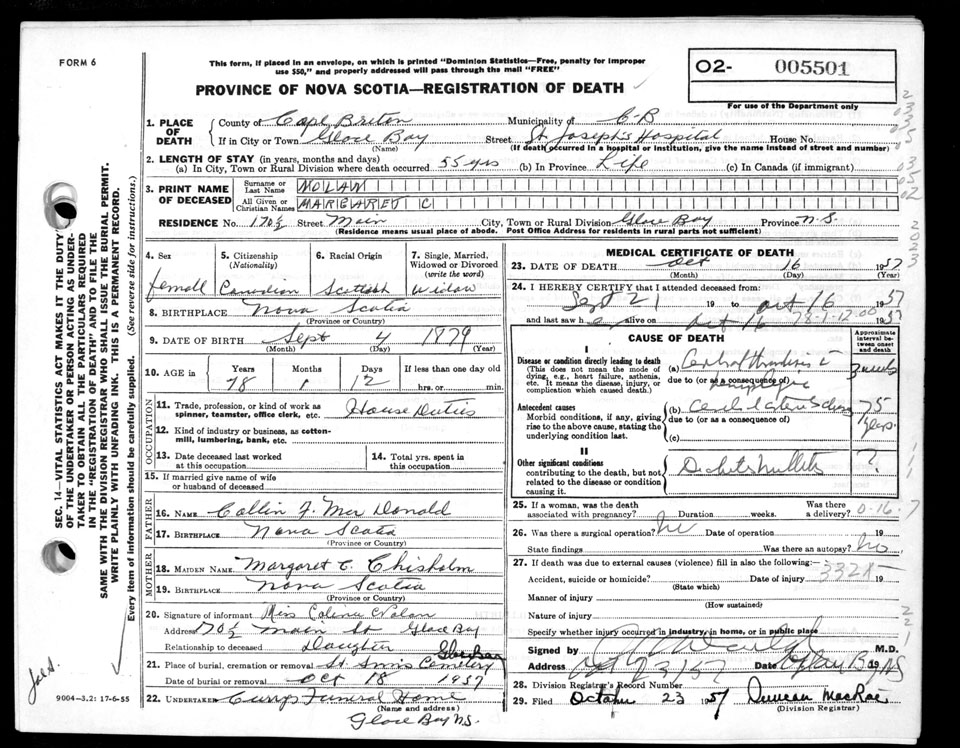 FORM 6
This form, if placed in an envelope, on which is printed "Dominion Statistics—Free, penalty for improper
use $50," and properly addressed will pass through the mail "FREE"
PROVINCE OF NOVA SCOTIA—REGISTRATION OF DEATH
02- 005501
For use of the Department only
SEC. 14—VITAL STATISTICS ACT MAKES IT THE DUTY
OF THE UNDERTAKER OR PERSON ACTING AS UNDER-
TAKER TO OBTAIN ALL THE PARTICULARS REQUIRED
IN THE "REGISTRATION OF DEATH" AND TO FILE THE
SAME WITH THE DIVISION REGISTRAR WHO SHALL ISSUE THE BURIAL PERMIT.
WRITE PLAINLY WITH UNFADING INK. THIS IS A PERMANENT RECORD.
Every item of information should be carefully supplied. (See reverse side for instructions.)
9004—3.2: 17-6-55
1. PLACE OF DEATH
County of Cape Breton Municipality of C-B
If in City or Town Glace Bay Street St. Joseph's Hospital House No.
(Name) (If death occurred in a hospital or institution, give the name instead of street and number)
2. LENGTH OF STAY (in years, months and days)
(a) In City, Town or Rural Division where death occurred 55 yrs (b) In Province Life (c) In Canada (if immigrant)
3. PRINT NAME OF DECEASED
Surname or Last Name NOLAN
All Given or Christian Names MARGARET C
RESIDENCE No. 170½ Street Main City, Town or Rural Division Glace Bay Province N.S.
(Residence means usual place of abode. Post Office Address for residents in rural parts not sufficient)
4. Sex
female
5. Citizenship (Nationality)
Canadian
6. Racial Origin
Scottish
7. Single, Married, Widowed or Divorced (write the word)
Widow
8. BIRTHPLACE Nova Scotia
(Province or Country)
9. DATE OF BIRTH Sept 4 1879
(Month) (Day) (Year)
10. AGE in Years Months Days If less than one day old
78 1 12 hrs. or min.
OCCUPATION
11. Trade, profession, or kind of work as spinner, teamster, office clerk, etc. House Duties
12. Kind of industry or business, as cotton-mill, lumbering, bank, etc.
13. Date deceased last worked at this occupation
14. Total yrs. spent in this occupation
15. If married give name of wife or husband of deceased
FATHER
16. NAME Collin F. Mac Donald
17. BIRTHPLACE Nova Scotia
(Province or Country)
MOTHER
18. MAIDEN NAME Margaret C. Chisholm
19. BIRTHPLACE Nova Scotia
(Province or Country)
20. Signature of informant Miss Nolan
Address 170½ Main St Glace Bay
Relationship to deceased Daughter
Glace Bay
21. Place of burial, cremation or removal St. Cemetery
Date of burial or removal Oct 18 1957
22. UNDERTAKER Currys Funeral Home
(Name and address)
Glace Bay N.S.
MEDICAL CERTIFICATE OF DEATH
23. DATE OF DEATH Oct 16 1957
(Month) (Day) (Year)
24. I HEREBY CERTIFY that I attended deceased from:
Sept 21 19 to Oct 16 1957
and last saw her alive on Oct 16 1957
78-1-12.00
CAUSE OF DEATH
Approximate interval between onset and death
I
Disease or condition directly leading to death
(This does not mean the mode of dying, e.g., heart failure, asthenia, etc. It means the disease, injury, or complication which caused death.)
(a) 3 weeks
due to (or as a consequence of)
Antecedent causes
Morbid conditions, if any, giving rise to the above cause, stating the underlying condition last.
(b)
due to (or as a consequence of)
(c)
II
Other significant conditions
contributing to the death, but not related to the disease or condition causing it.
?
25. If a woman, was the death associated with pregnancy? Duration weeks. Was there a delivery?
0-16-7
26. Was there a surgical operation? no Date of operation 19
State findings Was there an autopsy? no
27. If death was due to external causes (violence) fill in also the following:
Accident, suicide or homicide? Date of injury 19
(State which)
Manner of injury
(How sustained)
Nature of injury
Specify whether injury occurred in industry, in home, or in public place
Signed by M.D.
Address Date 19
28. Division Registrar's Record Number
29. Filed October 23 1957 Duncan MacRae
(Division Registrar)